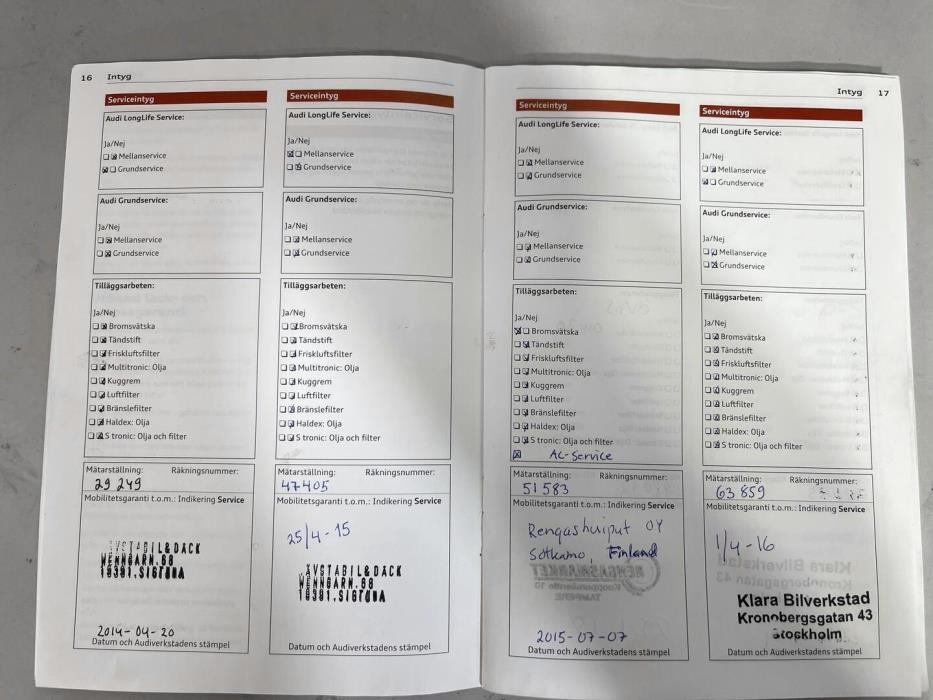 16 Intyg
Serviceintyg
Audi LongLife Service:
Ja/Nej
Mellanservice
Grundservice
Audi Grundservice:
Ja/Nej
Mellanservice
Grundservice
Tilläggsarbeten:
Ja/Nej
Bromsvätska
Tändstift
Friskluftsfilter
Multitronic: Olja
Kuggrem
Luftfilter
Bränslefilter
Haldex: Olja
S tronic: Olja och filter
Mätarställning: Räkningsnummer:
29 249
Mobilitetsgaranti t.o.m.: Indikering Service
XVSTABIL&DACK
WENNGARN.88
19391.SIGTUNA
2014-04-20
Datum och Audiverkstadens stämpel
Serviceintyg
Audi LongLife Service:
Ja/Nej
Mellanservice
Grundservice
Audi Grundservice:
Ja/Nej
Mellanservice
Grundservice
Tilläggsarbeten:
Ja/Nej
Bromsvätska
Tändstift
Friskluftsfilter
Multitronic: Olja
Kuggrem
Luftfilter
Bränslefilter
Haldex: Olja
S tronic: Olja och filter
Mätarställning: Räkningsnummer:
47405
Mobilitetsgaranti t.o.m.: Indikering Service
25/4-15
XVSTABIL&DACK
WENNGARN.88
19391.SIGTUNA
Datum och Audiverkstadens stämpel
Intyg 17
Serviceintyg
Audi LongLife Service:
Ja/Nej
Mellanservice
Grundservice
Audi Grundservice:
Ja/Nej
Mellanservice
Grundservice
Tilläggsarbeten:
Ja/Nej
Bromsvätska
Tändstift
Friskluftsfilter
Multitronic: Olja
Kuggrem
Luftfilter
Bränslefilter
Haldex: Olja
S tronic: Olja och filter
AC-Service
Mätarställning: Räkningsnummer:
51 583
Mobilitetsgaranti t.o.m.: Indikering Service
Rengashuiput OY
Sotkamo, Finland
2015-07-07
Datum och Audiverkstadens stämpel
Serviceintyg
Audi LongLife Service:
Ja/Nej
Mellanservice
Grundservice
Audi Grundservice:
Ja/Nej
Mellanservice
Grundservice
Tilläggsarbeten:
Ja/Nej
Bromsvätska
Tändstift
Friskluftsfilter
Multitronic: Olja
Kuggrem
Luftfilter
Bränslefilter
Haldex: Olja
S tronic: Olja och filter
Mätarställning: Räkningsnummer:
63 859
Mobilitetsgaranti t.o.m.: Indikering Service
1/4-16
Klara Bilverkstad
Kronobergsgatan 43
Stockholm
Datum och Audiverkstadens stämpel